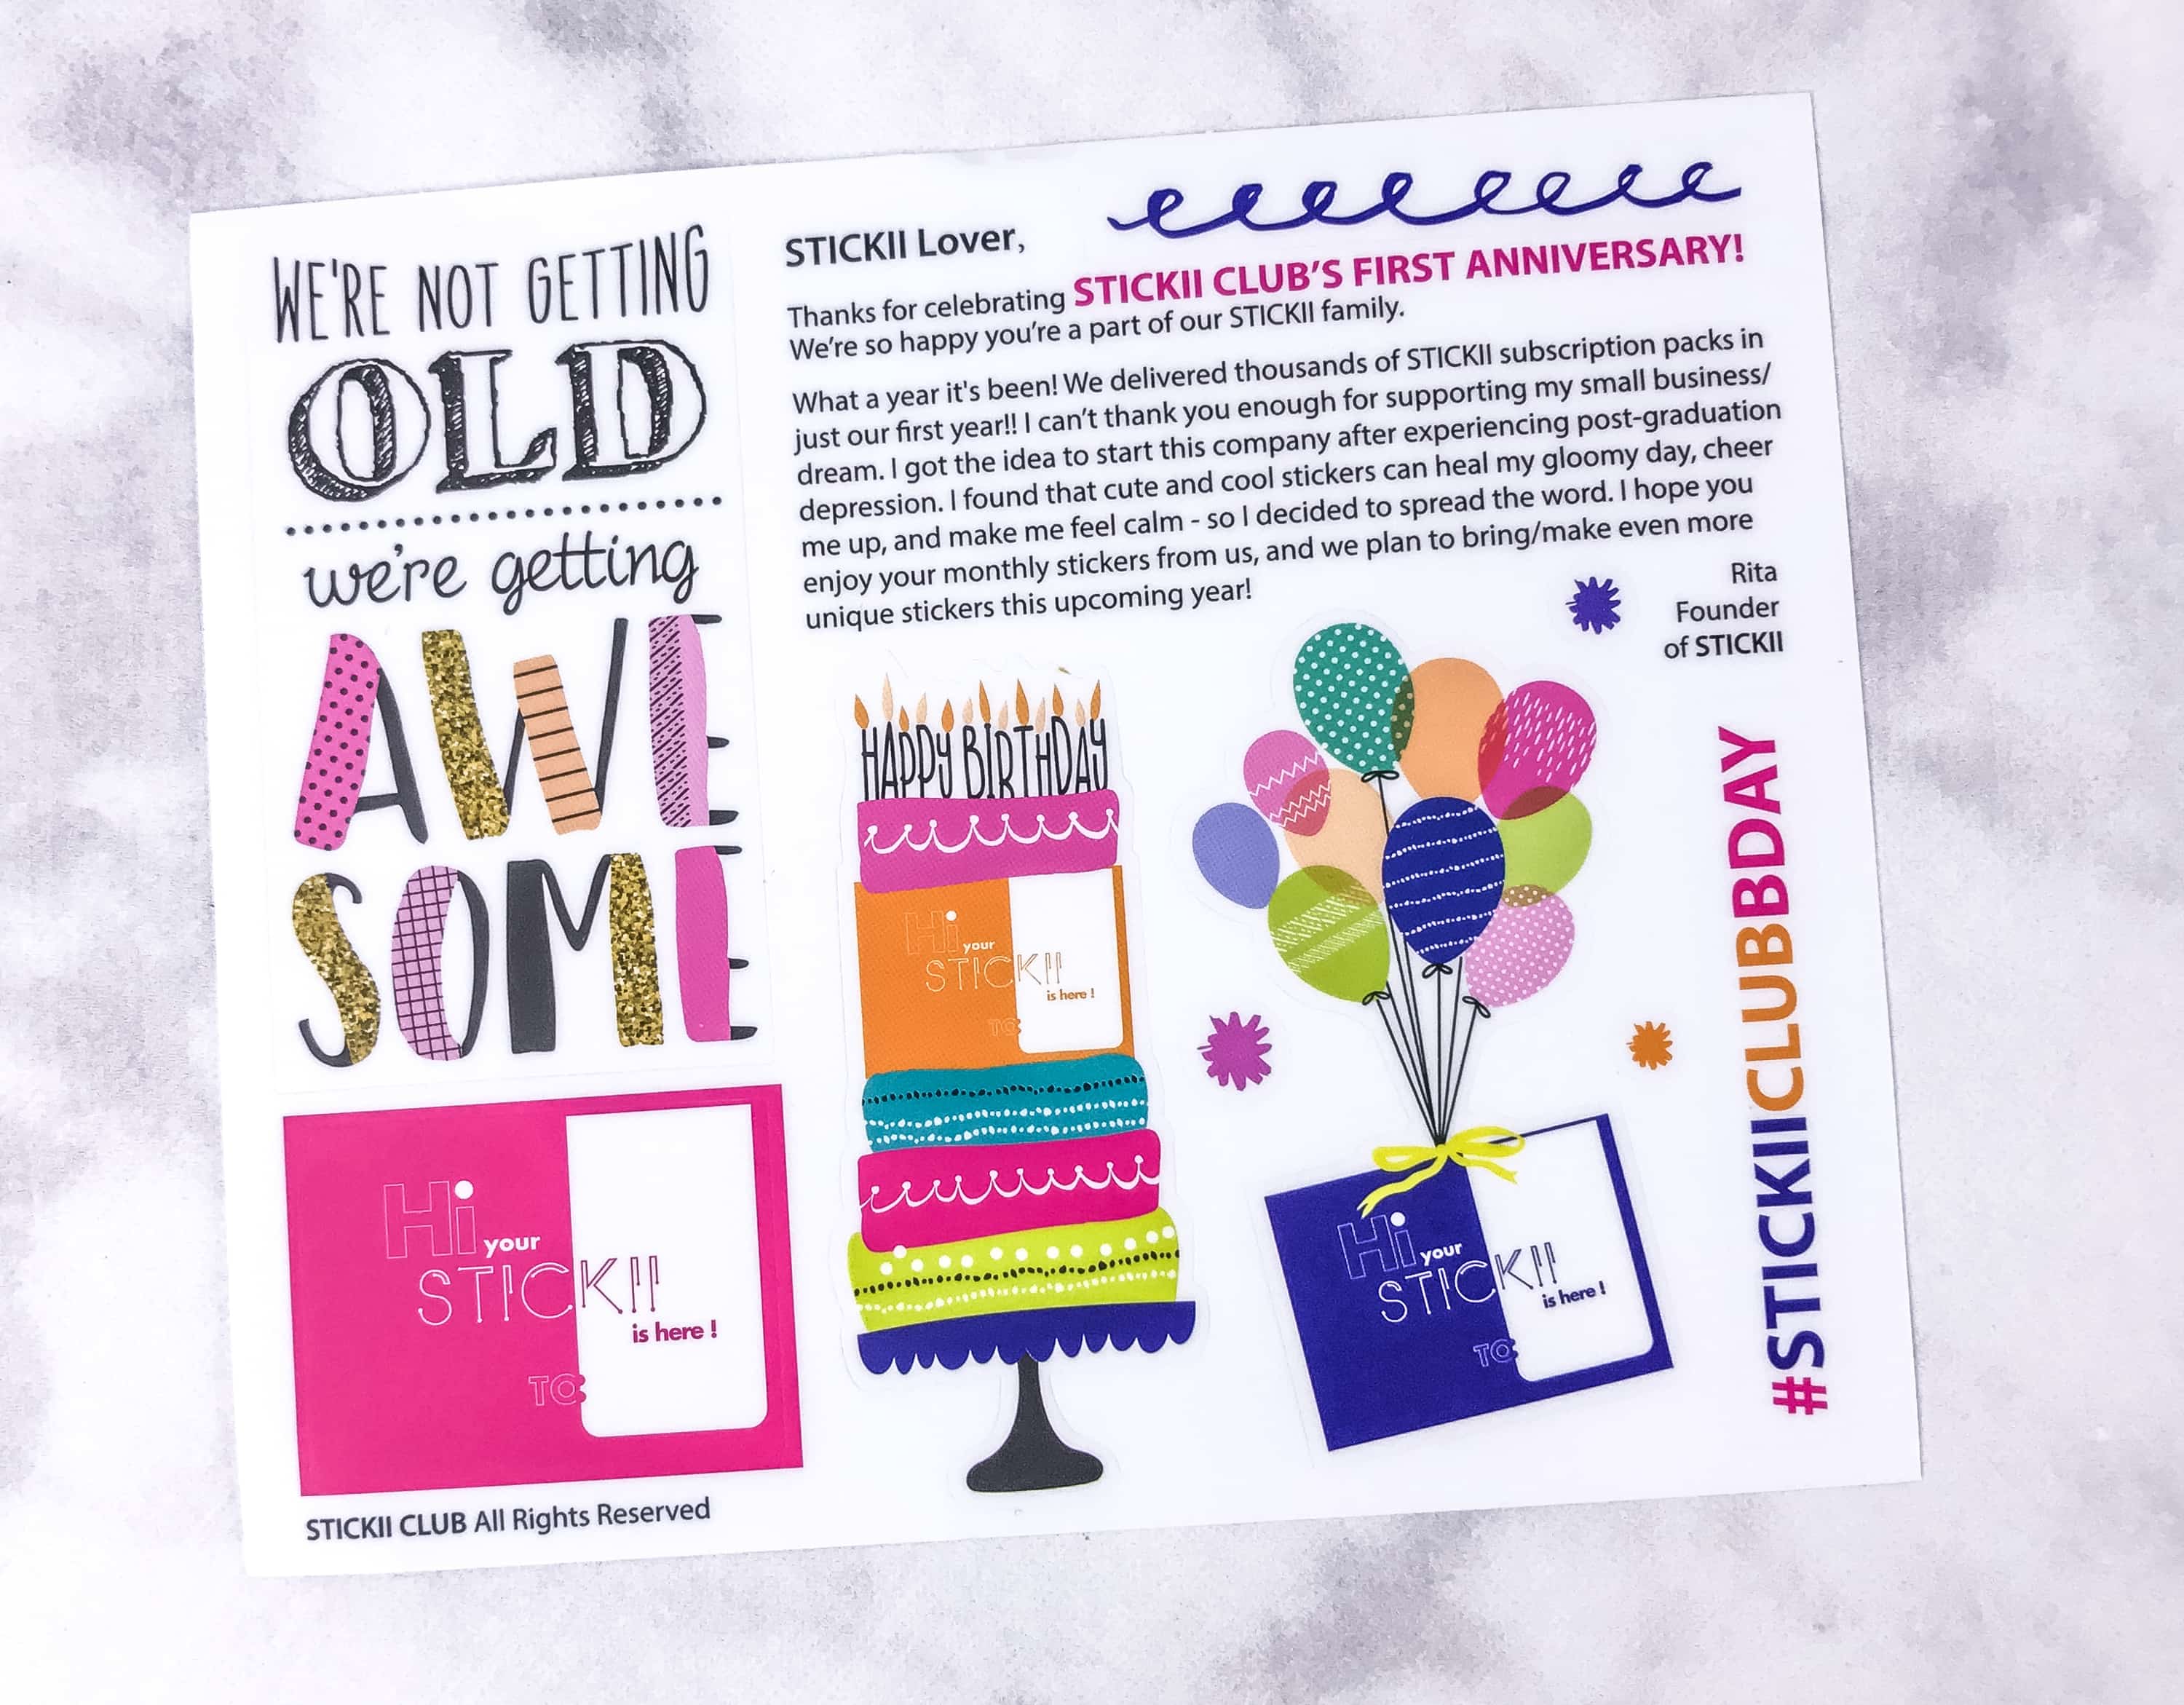 WE'RE NOT GETTING
OLD
we're getting
AWE
SOME
Hi your
STICKII
is here !
TO:
STICKII CLUB All Rights Reserved
STICKII Lover,
Thanks for celebrating STICKII CLUB'S FIRST ANNIVERSARY!
We're so happy you're a part of our STICKII family.
What a year it's been! We delivered thousands of STICKII subscription packs in
just our first year!! I can't thank you enough for supporting my small business/
dream. I got the idea to start this company after experiencing post-graduation
depression. I found that cute and cool stickers can heal my gloomy day, cheer
me up, and make me feel calm - so I decided to spread the word. I hope you
enjoy your monthly stickers from us, and we plan to bring/make even more
unique stickers this upcoming year!
Rita
Founder
of STICKII
HAPPY BIRTHDAY
Hi your
STICKII
is here !
TO:
Hi your
STICKII
is here !
TO:
#STICKIICLUBBDAY